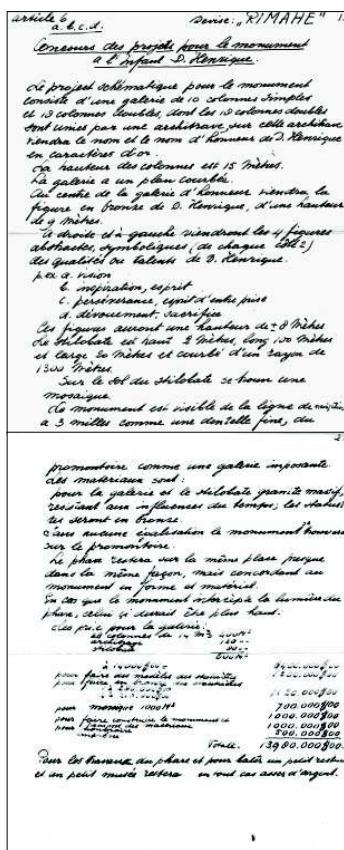 article 6 Devise: „RIMAHE" 1.
a. b. c. d.
Concours des projets pour le monument
a l'infant D. Henrique.
Le project schématique pour le monument
consiste d'une galerie de 10 colonnes simples
et 18 colonnes doubles, dont les 18 colonnes doubles
sont unies par une architrave sur cette architrave
viendra le nom et le nom d'honneur de D. Henrique
en caractères d'or.
La hauteur des colonnes est 15 mètres.
La galerie a un plan courbée.
Au centre de la galerie d'honneur viendra la
figure en bronze de D. Henrique, d'une hauteur
de 9 mètres.
A droite et à gauche viendront les 4 figures
abstractes, symboliques (de chaque côté 2)
des qualités ou talents de D. Henrique.
p. ex. a. vision
b. inspiration, esprit
c. persévérance, esprit d'entreprise
d. dévouement, sacrifice
Ces figures auront une hauteur de ± 8 mètres
Le stilobate est haut 2 mètres, long 100 mètres
et large 20 mètres et courbé d'un rayon de
1300 mètres.
Sur le sol du stilobate se trouve une
mosaique.
Le monument est visible de la ligne de
a 3 milles comme une dentelle fine, du
2
promontoire comme une galerie imposante.
Les materiaux sont:
pour la galerie et le stilobate granite massif,
resistant aux influences du temps; les statues
seront en bronze.
Sans aucune le monument
sur le promontoire.
Le phare restera sur la même place presque
dans la même façon, mais concordant au
monument en forme et materiel.
En cas que le monument intercepte la lumière du
phare, celui ci devrait être plus haut.
Les prix pour la galerie:
colonnes de 14 m3
architrave
stilobate
à 14000$00 8400.000$00
pour faire des modèles des statuettes
pour faire en bronze des
1120.000$00
pour mosaique 1000 M² 700.000$00
pour faire construire le monument 1000.000$00
pour des materiaux 1000.000$00
pour honoraire 500.000$00
imprévu
Totale: 13980.000$00
Pour les travaux du phare et pour batir un petit
et un petit musée restera en tout cas assez d'argent.